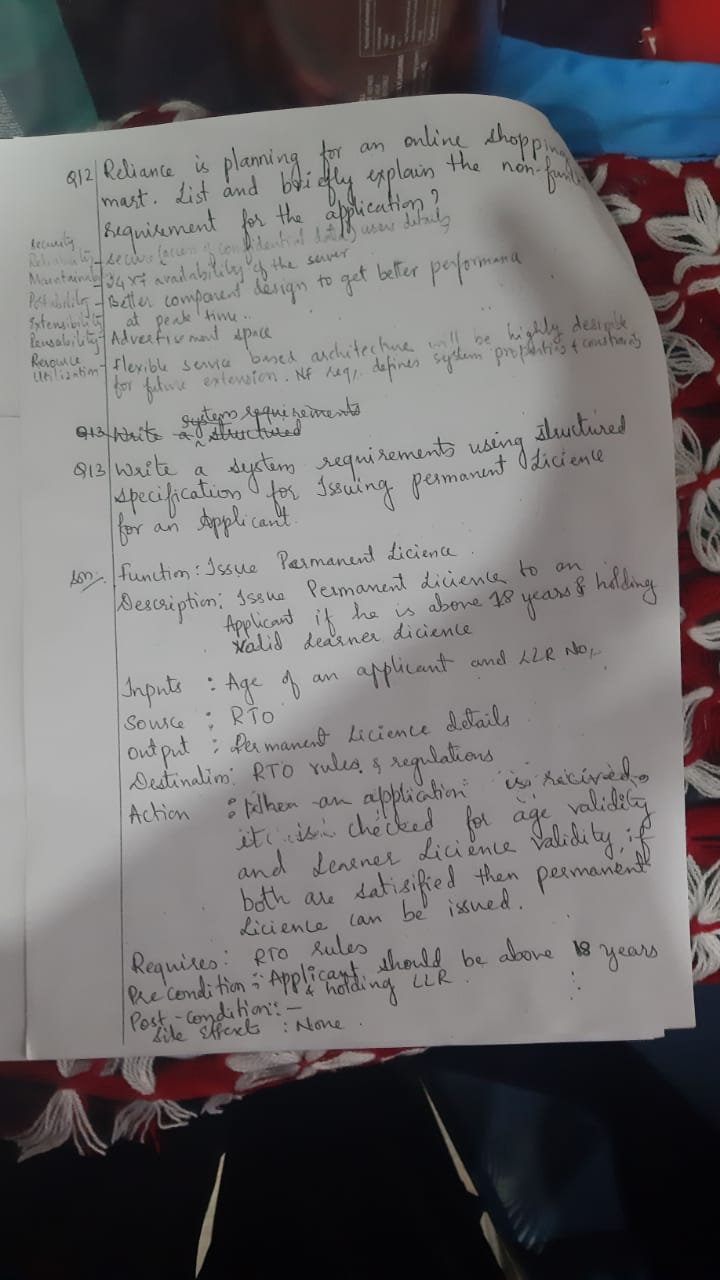 Q12 Reliance is planning for an online shopping
mart. List and briefly explain the non-func
requirement for the application?
Security
Reliability - secure (access of confidential data) users details
Maintainab - 24x7 availability of the server
Portability - Better component design to get better performance
Extensibility at peak time..
Reusability - Advertisement space
Resource - flexible service based architecture will be highly desirable
Utilization - for future extension. NF req, defines system properties & constraints
system requirements
Q13 Write a structured
Q13 Write a system requirements using structured
specification for Issuing permanent Licience
for an Applicant.
Soln:- Function: Issue Permanent Licience.
Description: Issue Permanent Licience to an
Applicant if he is above 18 years & holding
Valid Learner Licience
Inputs : Age of an applicant and LLR No,.
Source : RTO
Output : Permanent Licience details
Destination: RTO rules & regulations
Action : When an application is recived,
it is checked for age validity
and Learner Licience validity, if
both are satisified then permanent
Licience can be issued.
Requires: RTO rules
Pre condition: Applicant should be above 18 years
& holding LLR.
Post-condition: -
Side Effects : None.